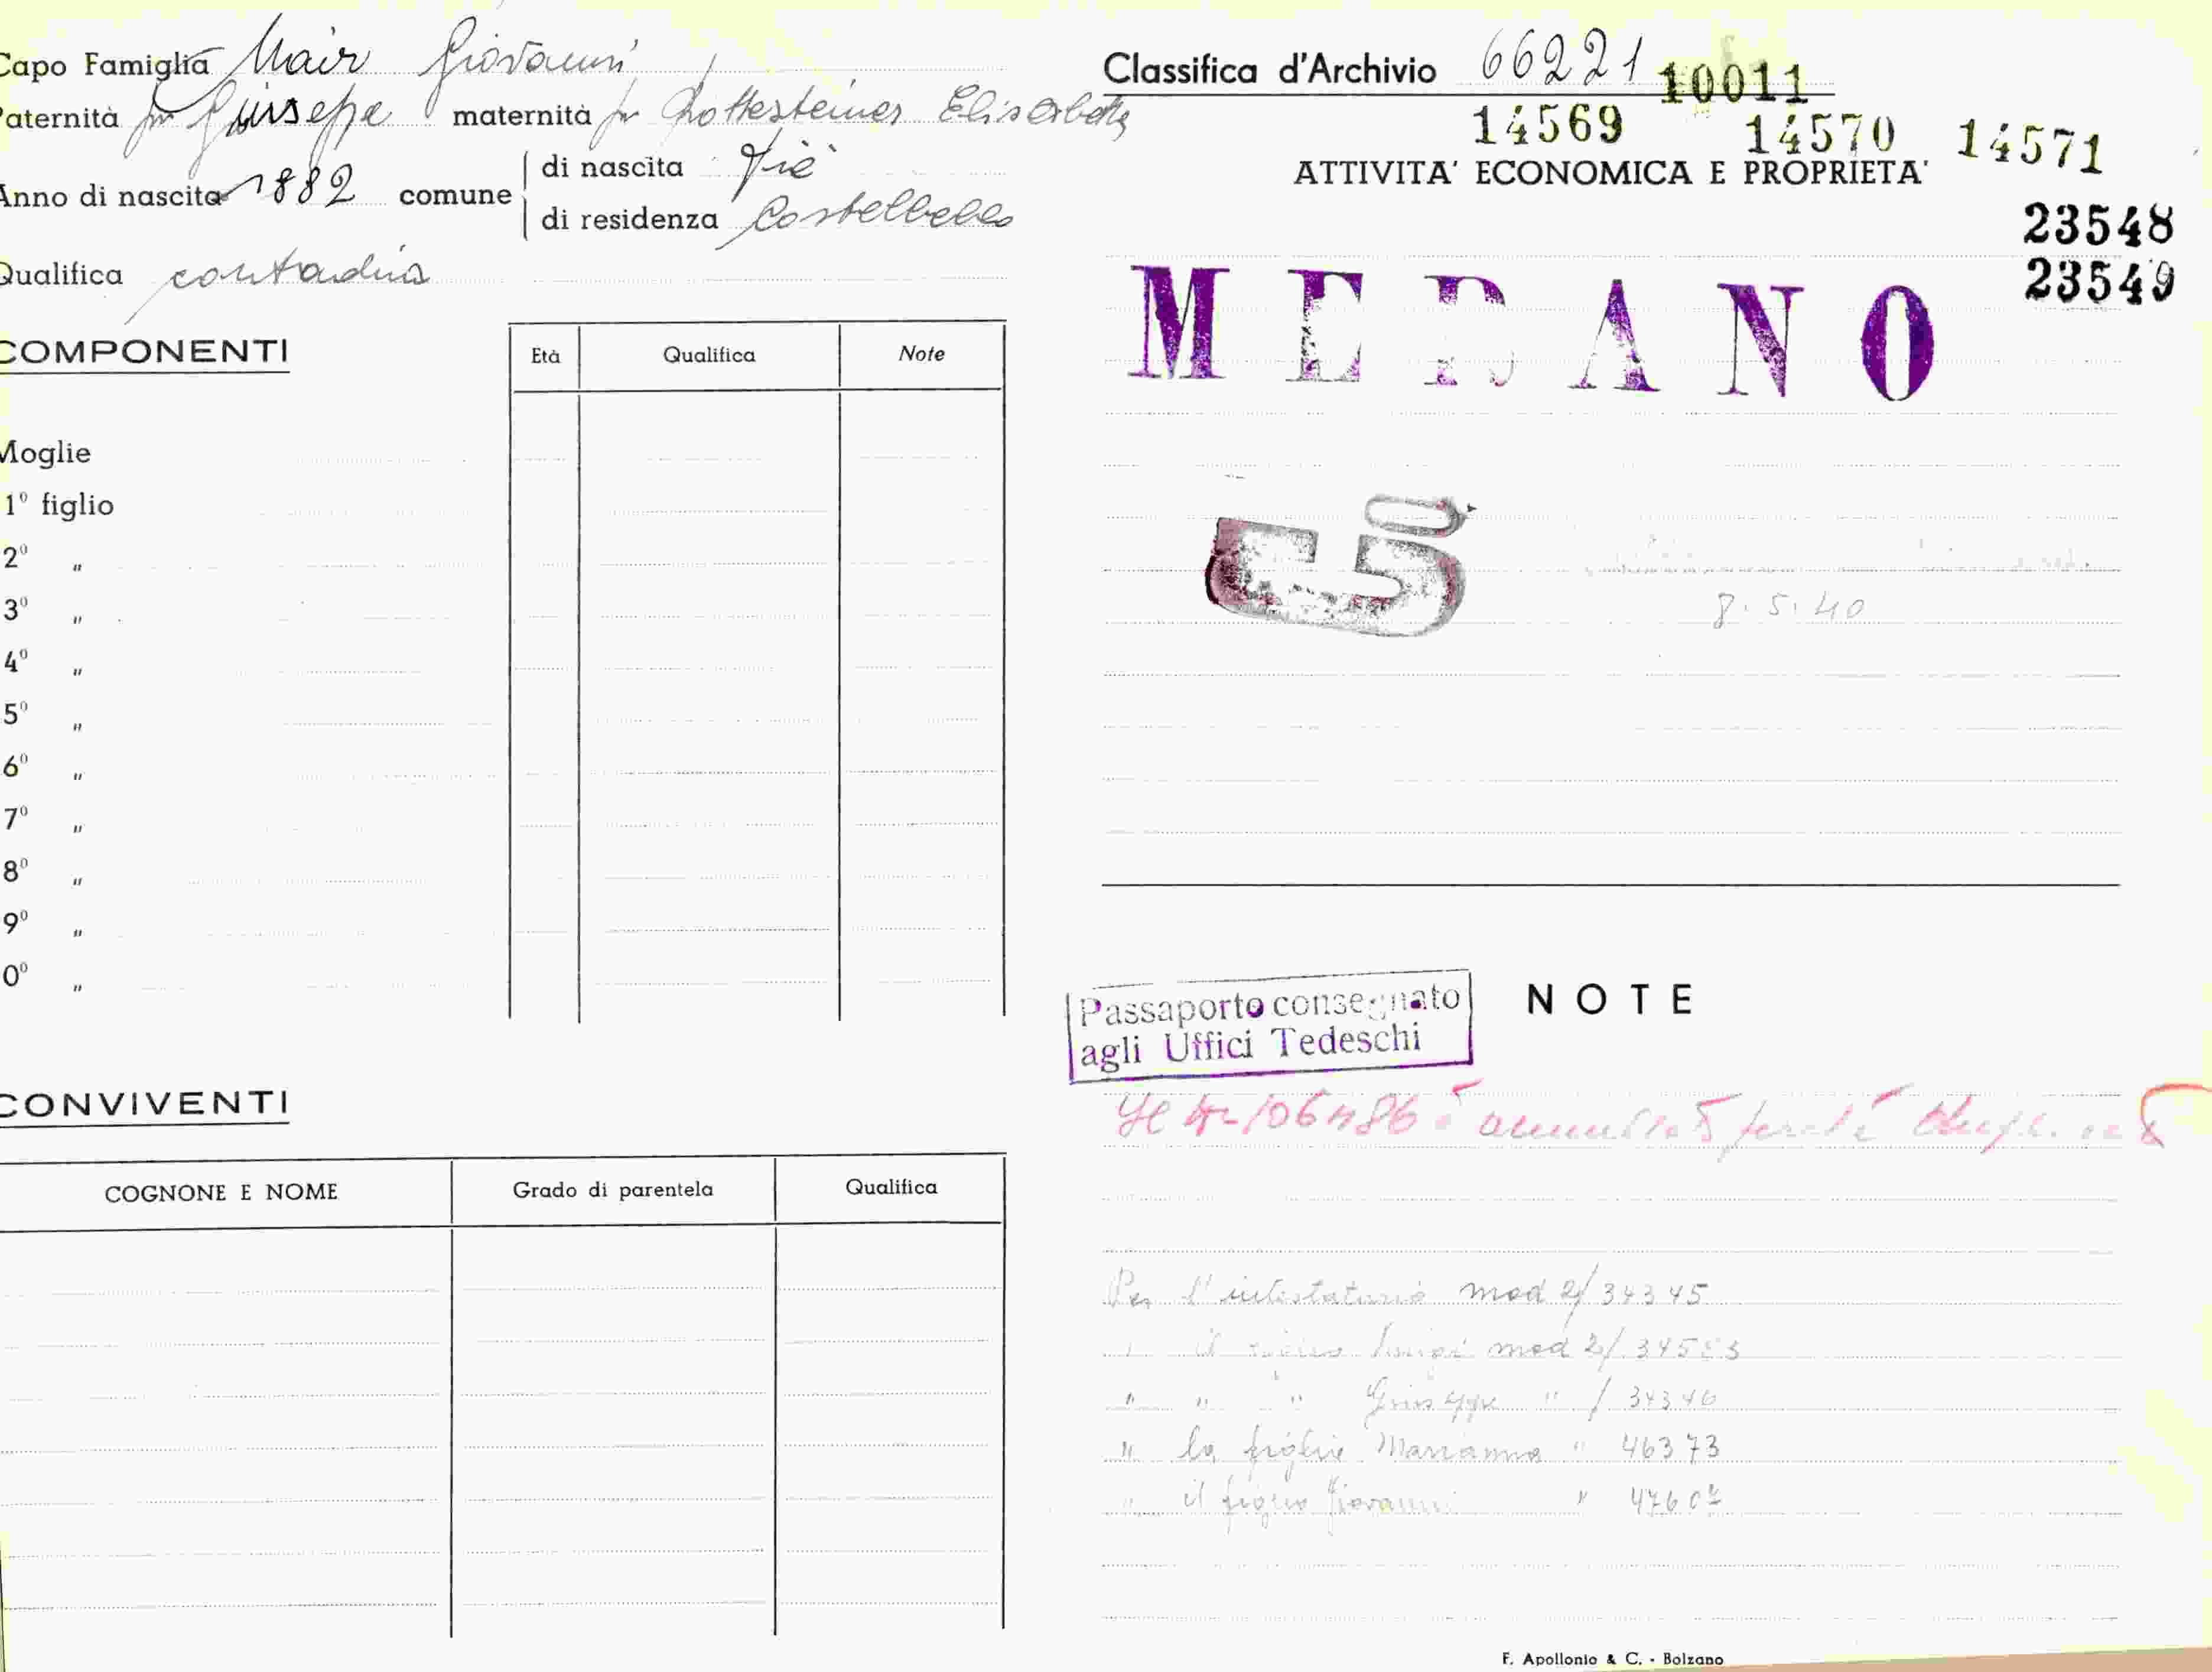 Capo Famiglia Mair Giovanni
Paternità fu Giuseppe maternità fu Gottesteiner Elisabetta
Anno di nascita 1882 comune di nascita Fiè
di residenza Castelbello
Qualifica contadino
COMPONENTI
Età Qualifica Note
Moglie
1º figlio
2º "
3º "
4º "
5º "
6º "
7º "
8º "
9º "
0º "
CONVIVENTI
COGNONE E NOME Grado di parentela Qualifica
Classifica d'Archivio 66221 10011
14569 14570 14571
ATTIVITA' ECONOMICA E PROPRIETA'
23548
23549
MERANO
8.5.40
Passaporto consegnato
agli Uffici Tedeschi
NOTE
Per l'intestatario mod 2/34345
" il Luigi mod 2/
" " " Giuseppe " / 34346
" la figlia Marianna " 46373
" il figlio Giovanni "
F. Apollonio & C. - Bolzano